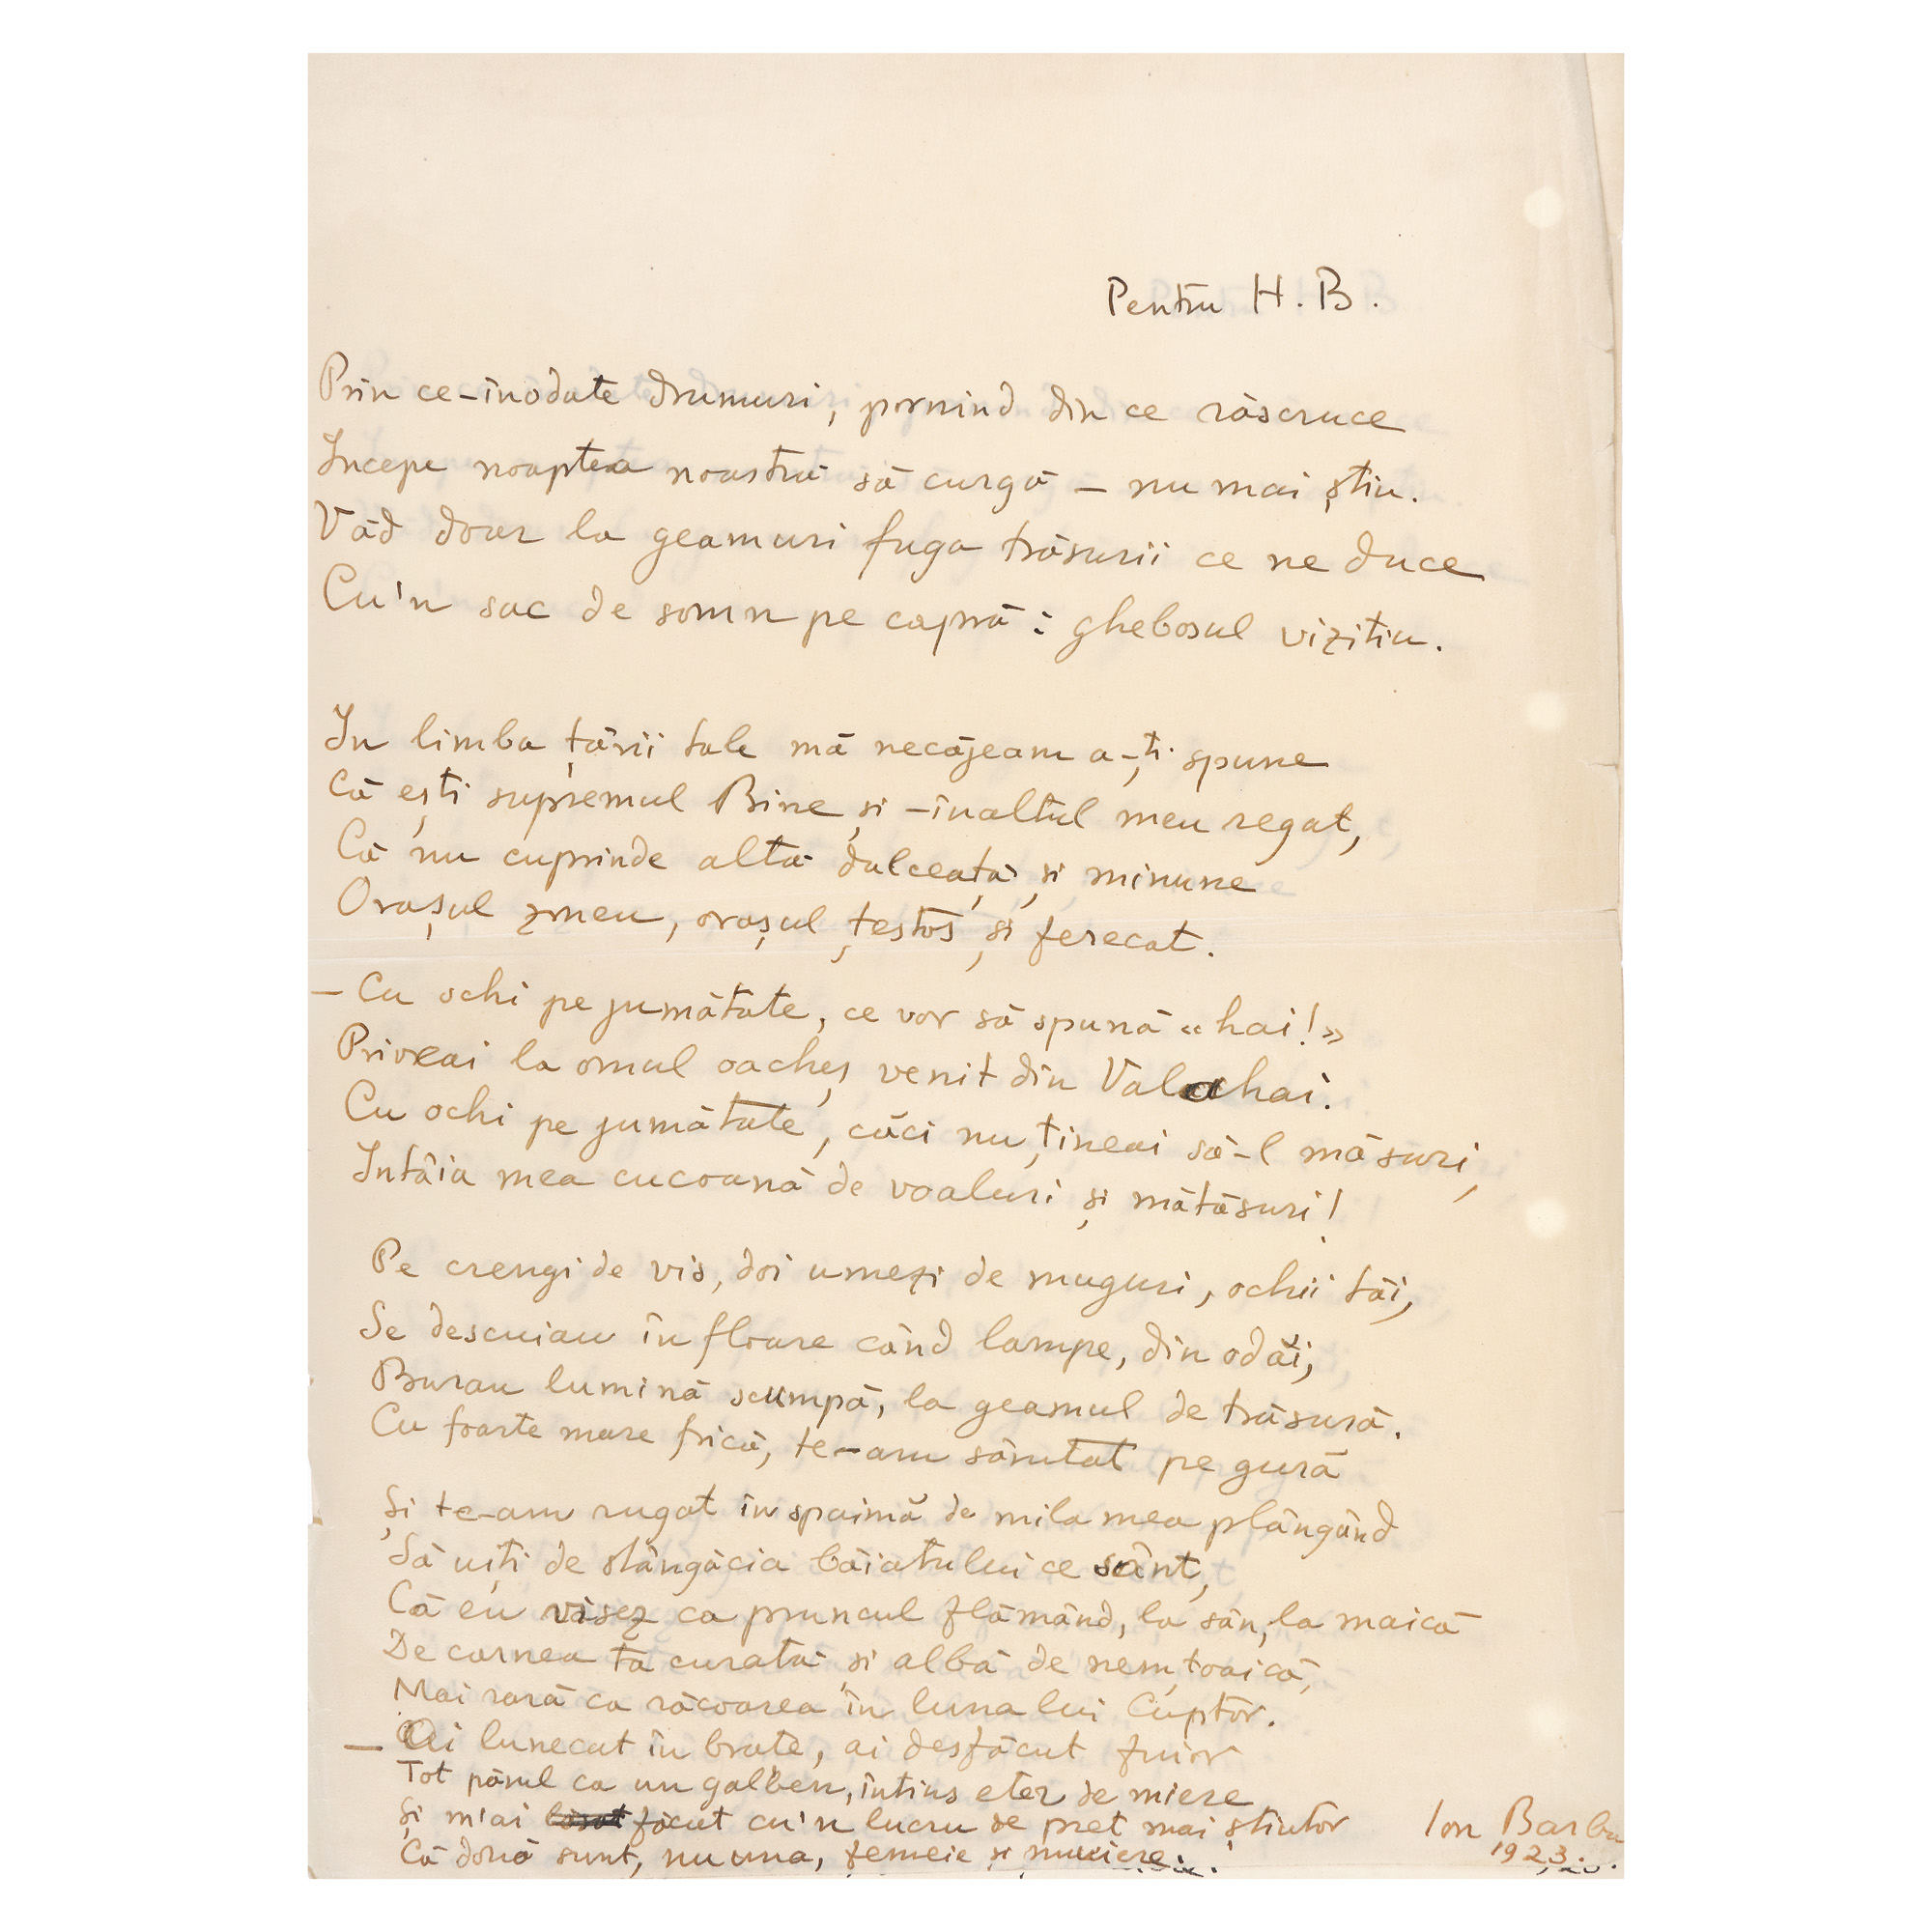 Pentru H. B.
Prin ce-înodate drumuri, pornind din ce răscruce
Incepe noaptea noastră să curgă – nu mai știu.
Văd doar la geamuri fuga trăsurii ce ne duce
Cu'n sac de somn pe capră: ghebosul vizitiu.
In limba țării tale mă necăjeam a-ți spune
Că ești supremul Bine și -înaltul meu regat,
Că nu cuprinde altă dulceață și minune
Orașul zmeu, orașul țestos și ferecat.
– Cu ochi pe jumătate, ce vor să spună «hai!»
Priveai la omul oacheș venit din Valahai.
Cu ochi pe jumătate, căci nu țineai să-l măsuri,
Intâia mea cucoană de voaluri și mătăsuri!
Pe crengi de vis, doi umezi de muguri, ochii tăi,
Se descuiau în floare când lampe, din odăi,
Burau lumină scumpă, la geamul de trăsură.
Cu foarte mare frică, te-am sărutat pe gură
Și te-am rugat în spaimă de mila mea plângând
Să uiți de stângăcia băiatului ce sânt,
Că eu visez ca pruncul flămând, la sân, la maică
De carnea ta curată și albă de nemțoaică,
Mai rară ca răcoarea în luna lui Cuptor.
– Ai lunecat în brațe, ai desfăcut fuior
Tot părul ca un galben, întins eter de miere
Și m'ai făcut cu'n lucru de preț mai știutor
Că două sunt, nu una, femeie și muiere.
Ion Barbu
1923.